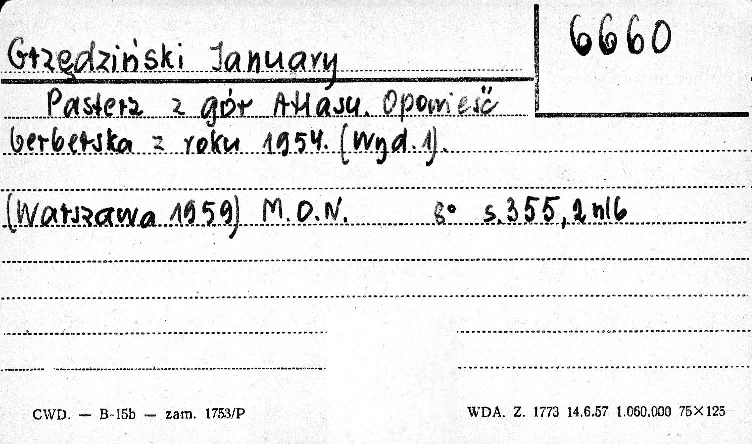 6660
Grzędziński January
Pasterz z gór Atlasu. Opowieść
berberska z roku 1954. (Wyd. 1).
(Warszawa 1959) M.O.N. 8° s. 355, 2 nlb
CWD. — B-15b — zam. 1753/P
WDA. Z. 1773 14.6.57 1.060.000 75×125